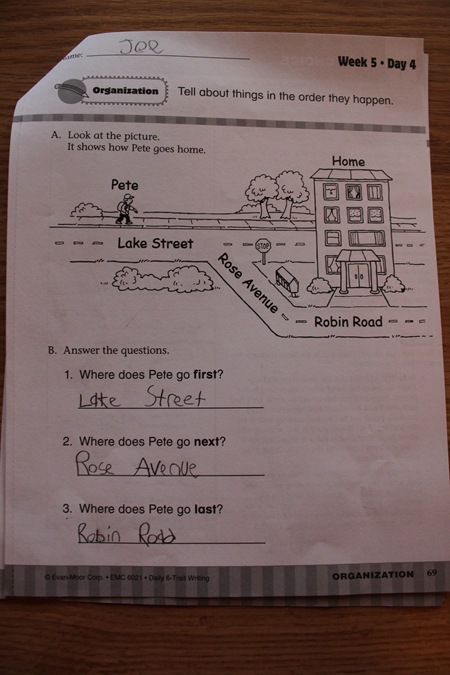 ame: JOE
Week 5 • Day 4
Organization
Tell about things in the order they happen.
A. Look at the picture.
It shows how Pete goes home.
Home
Pete
Lake Street
STOP
Rose Avenue
Robin Road
B. Answer the questions.
1. Where does Pete go first?
Lake Street
2. Where does Pete go next?
Rose Avenue
3. Where does Pete go last?
Robin Road
© Evan-Moor Corp. • EMC 6021 • Daily 6-Trait Writing
ORGANIZATION 69